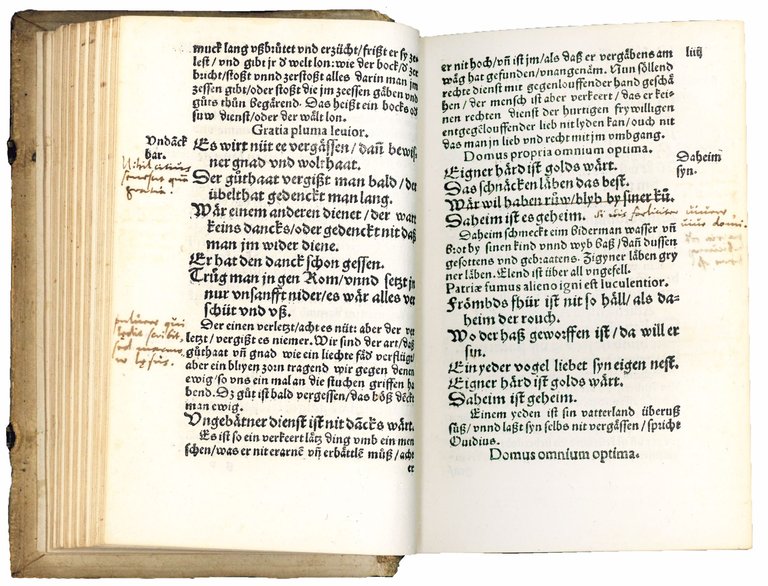 muck lang vßbrůtet vnd erzücht/frißt er sy ze
lest/ vnd gibt jr ď welt lon: wie der bock/ď ze
bricht/stoßt vnnd zerstoßt alles darin man jm
zessen gibt/oder stoßt die jm zeessen gåben vnd
gůts thůn Begårend. Das heißt ein bocks od
suw dienst/oder der wålt lon.
Gratia pluma leuior.
Vndanck
bar.
Es wirt nüt ee vergåssen/ dañ bewiß
ner gnad vnd wolthaat.
Der gůthaat vergißt man bald/ der
übelthat gedenckt man lang.
Wår einem anderen dienet/ der wart
keins dancks/oder gedenckt nit daß
man jm wider diene.
Er hat den danck schon gessen.
Trůg man jn gen Rom/vnnd setzt jn
nur vnsanfft nider/es wår alles ver
schüt vnd vß.
Der einen verletzt/achtes nüt: aber der ver
letzt/ vergißt es niemer. Wir sind der art/daß
gůthaat vñ gnad wie ein liechte fåď verflügt/
aber ein blyen zorn tragend wir gegen denen
ewig/so vns ein mal an die stuchen griffen ha
bend. Dz gůt ist bald vergessen/das böß dēckt
man ewig.
Vngebåtner dienst ist nit dācks wårt.
Es ist so ein verkeert låtz ding vmb ein men
schen/was er nit erarnē vñ erbåttlē můß/acht
er
er nit hoch/vñ ist jm/als daß er vergåbens am
wåg hat gefunden/vnangenåm. Nun söllend
rechte dienst mit gegenlouffender hand geschå
hen/ der mensch ist aber verkeert/das er kei-
nen rechten dienst der hurtigen frywilligen
entgegēlouffender lieb nit lyden kan/ouch nit
das man jn lieb vnd recht mit jm vmbgang.
Domus propria omnium optima.
Daheim
syn.
Eigner hård ist golds wårt.
Das schnäcken låben das best.
Wår wil haben růw/blyb by siner ků.
Daheim ist es geheim.
Daheim schmeckt eim Biderman wasser vñ
Brot by sinen kind vnnd wyb baß/dañ dussen
gesottens vnd gebraatens. Zigyner låben gry
ner låben. Elend ist über all vngefell.
Patriæ fumus alieno igni est luculentior.
Frömbds fhür ist nit so håll/ als da-
heim der rouch.
Wo der haß geworffen ist/da will er
sin.
Ein yeder vogel liebet syn eigen nest.
Eigner hård ist golds wårt.
Daheim ist geheim.
Einem yeden ist sin vatterland überuß
süß/vnnd laßt syn selbs nit vergåssen/spricht
Ouidius.
Domus omnium optima.